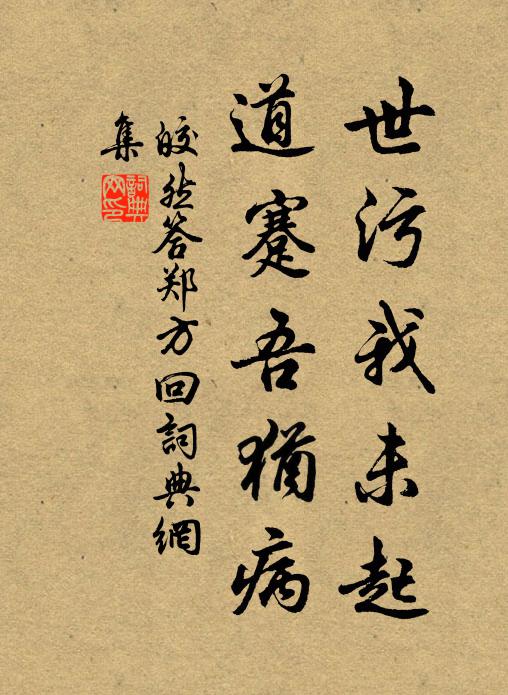 世污我未起
道蹇吾犹病
皎然答郑方回詞典網
集
詞典网印